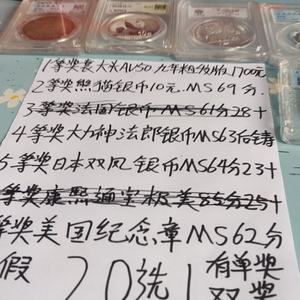 1等奖袁大头AU50九年粗发版1700元
2等奖熊猫银币10元.MS69分.
3等奖法国银币MS61分28+
4等奖大力神法郎银币MS63后铸
5等奖日本双凤银币MS64分23+
等奖康熙通宝极美85分25+
等奖美国纪念章MS62分
假 20选1 有单奖
双奖